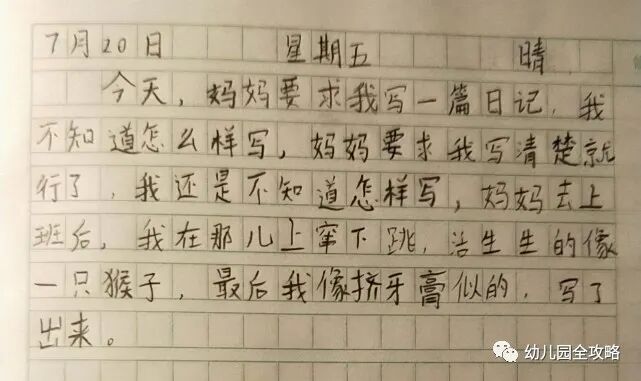 7月20日 星期五 晴
今天，妈妈要求我写一篇日记，我
不知道怎么样写，妈妈要求我写清楚就
行了，我还是不知道怎样写，妈妈去上
班后，我在那儿上窜下跳，活生生的像
一只猴子，最后我像挤牙膏似的，写了
出来。
幼儿园全攻略